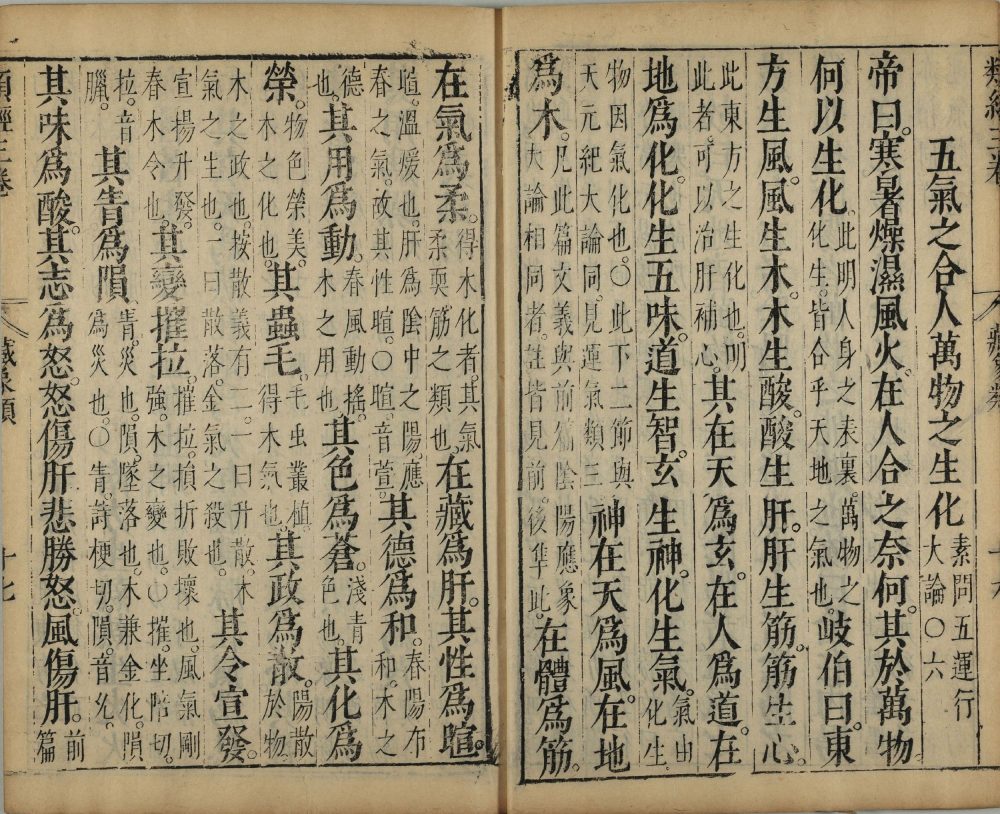 類經三卷 藏象類 十六
五氣之合人萬物之生化 素問五運行大論○六
帝曰。寒暑燥濕風火在人合之奈何。其於萬物
何以生化。此明人身之表裏。萬物之化生。皆合乎天地之氣也。岐伯曰。東
方生風。風生木。木生酸。酸生肝。肝生筋。筋生心。
此東方之生化也。明此者。可以治肝補心。其在天爲玄。在人爲道。在
地爲化。化生五味。道生智。玄生神。化生氣。氣由化生
物因氣化也。○此下二節與天元紀大論同。見運氣類三 神在天爲風。在地
爲木。凡此篇文義與前篇陰陽應象大論相同者。註皆見前。後凖此。在體爲筋。
在氣爲柔。得木化者其氣柔耎。筋之類也。在藏爲肝。其性爲暄。
暄。溫煖也。肝爲陰中之陽。應春之氣。故其性暄。○暄音萱。其德爲和。春陽布和。木之
德也。其用爲動。春風動搖。木之用也。其色爲蒼。淺青色也。其化爲
榮。物色榮美。木之化也。其蟲毛。毛虫叢植得木氣也。其政爲散。陽散於物
木之政也。按散義有二。一曰升散。木氣之生也。一曰散落。金氣之殺也。其令宣發。
宣揚升發。春木令也。其變摧拉。摧拉。損折敗壞也。風氣剛強。木之變也。○摧坐陪切。
拉。音臘。其眚爲隕。眚。災也。隕。墜落也。木兼金化。隕爲災也。○眚。詩梗切。隕。音允。
其味爲酸。其志爲怒。怒傷肝。悲勝怒。風傷肝。前篇
類經三卷 藏象類 十七